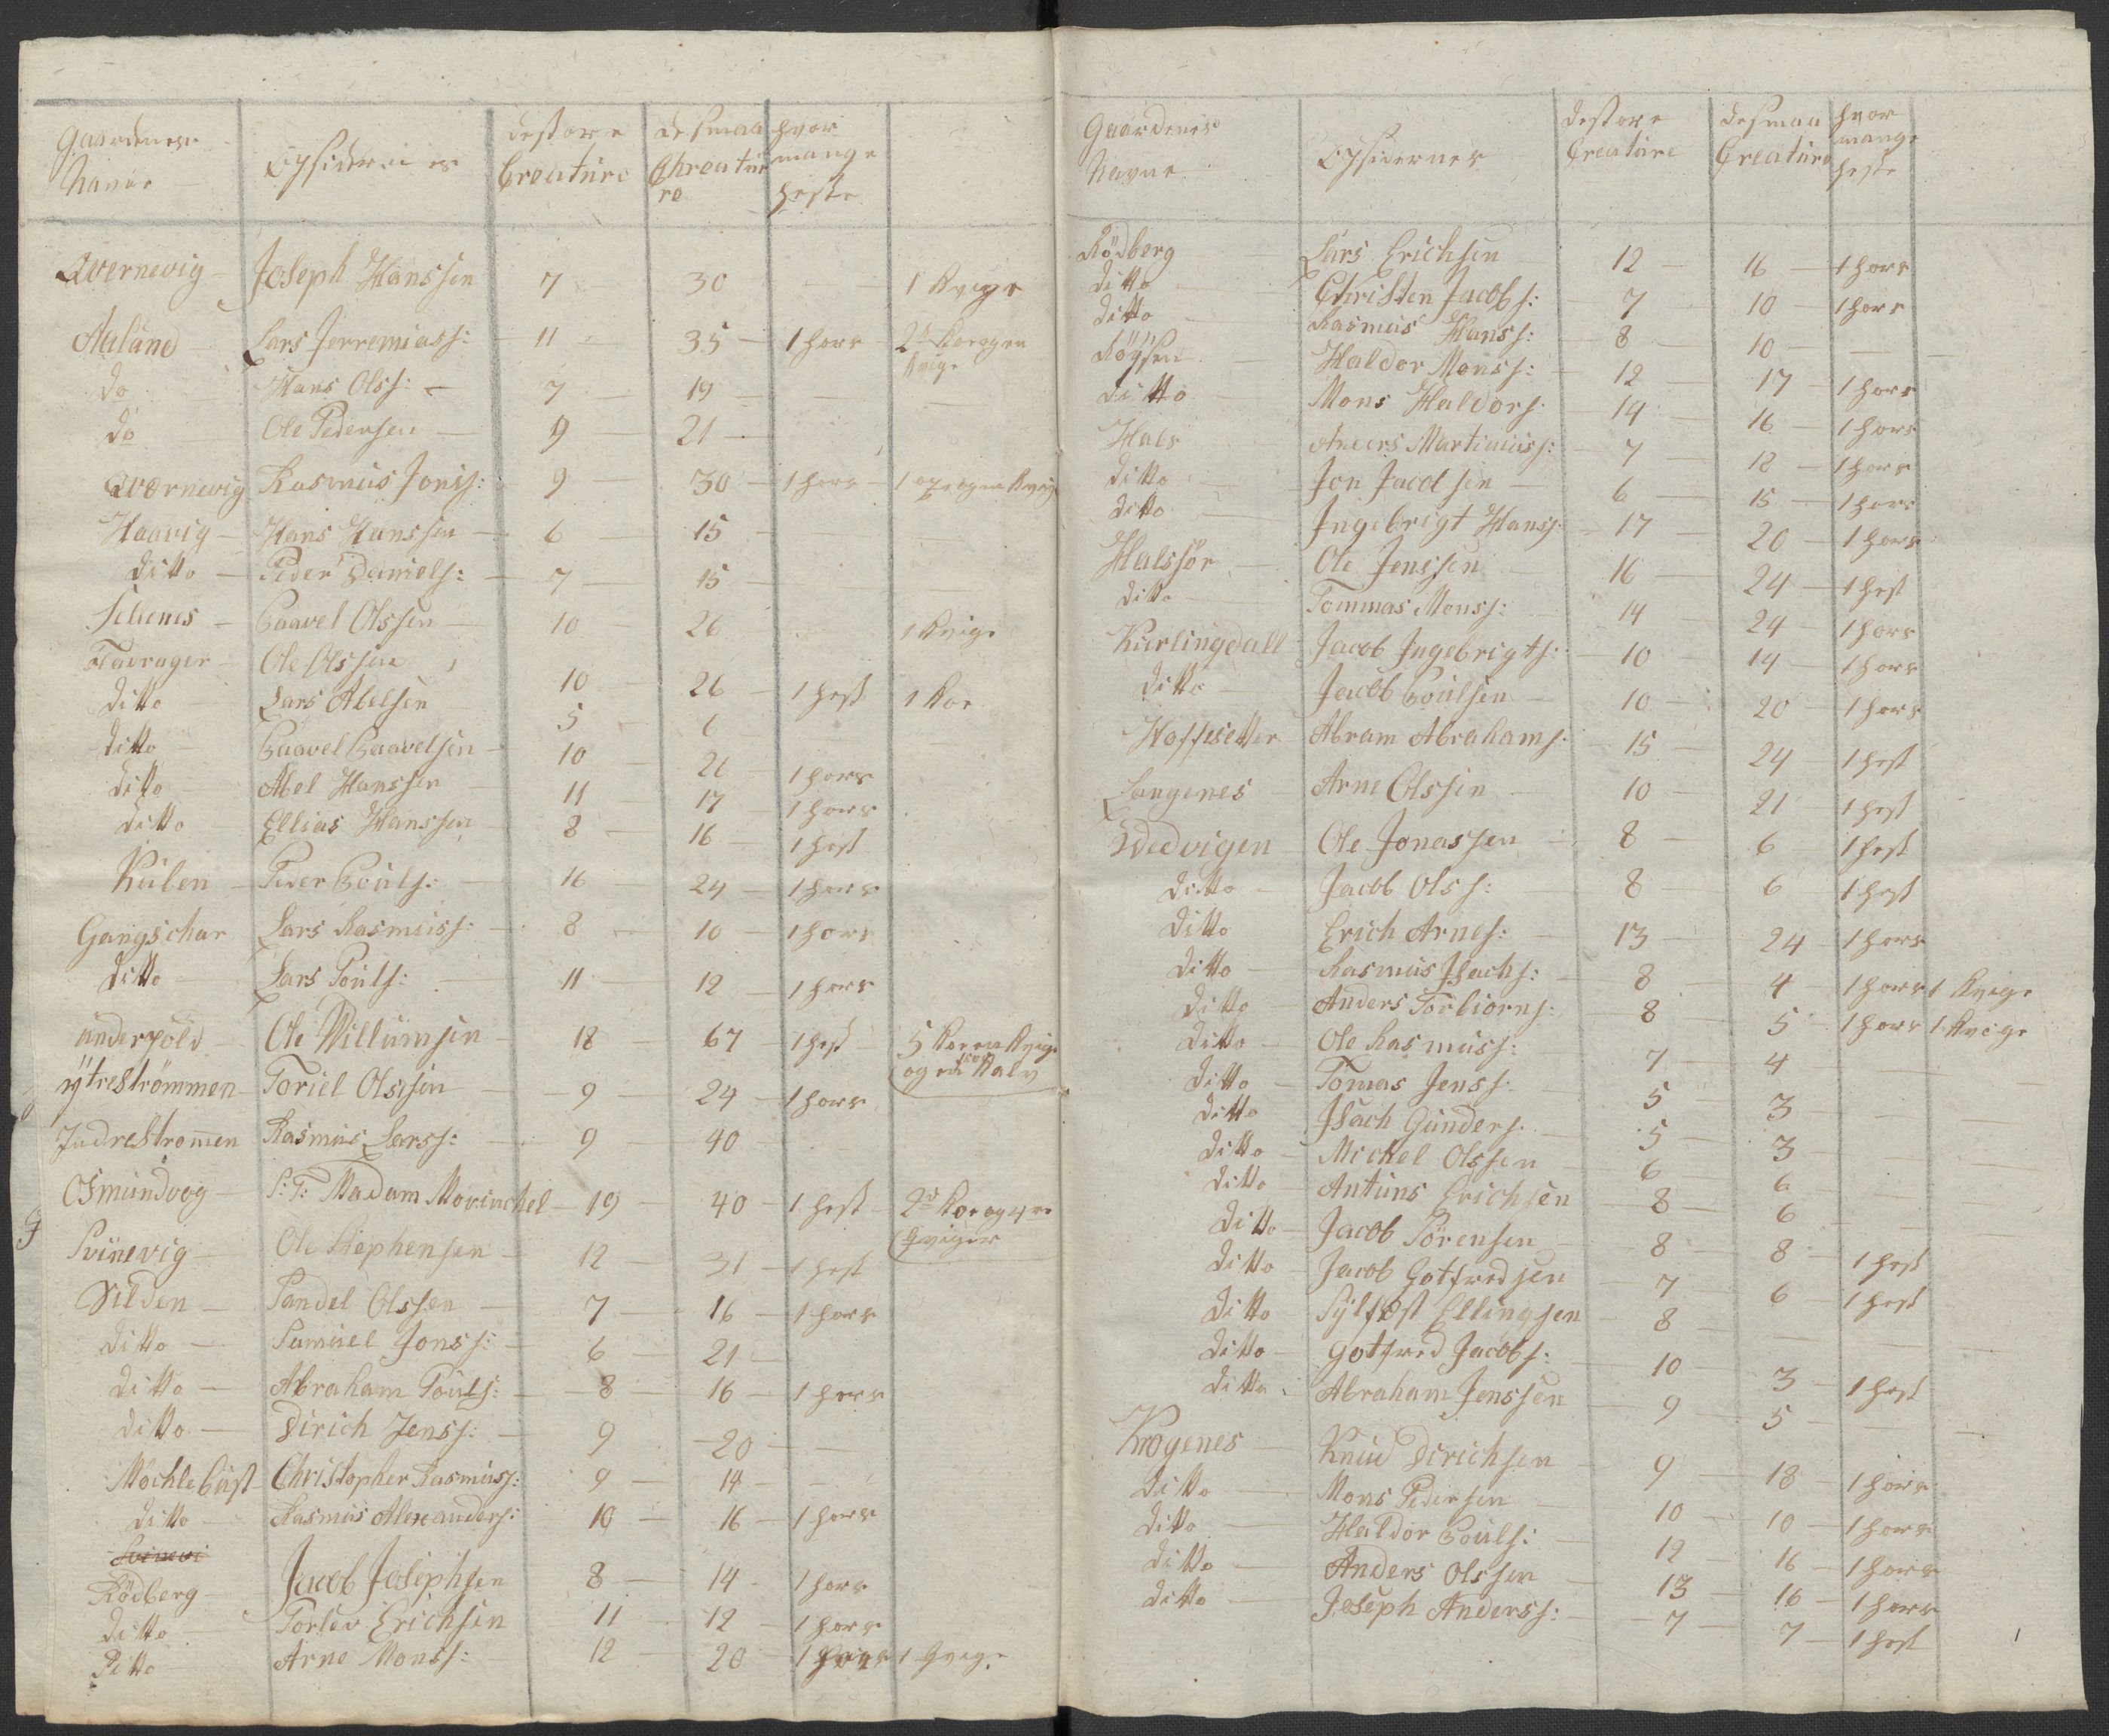 Gaardenes Navne — Opsidernes — de store Creature — de smaa Chreature — hvor mange heste
Qvernevig — Joseph Hanssen — 7 — 30 — 1 Kvige
Aaland — Lars Jerremiass: — 11 — 35 — 1 hors — 2 Kor og en Kvige
do — Hans Olss: — 7 — 19
do — Ole Pedersen — 9 — 21
Qvernevig — Rasmus Jonss: — 9 — 30 — 1 hors — 1
Haavig — Hans Hanssen — 6 — 15
ditto — Peder Daniels: — 7 — 15
Sellenes — Paavel Olssen — 10 — 26 — 1 Kvige
Ole Olssen — 10 — 26 — 1 hest — 1 Koe
ditto — Lars Abelsen — 5 — 6
ditto — Paavel Paavelsen — 10 — 26 — 1 hors
ditto — Abel Hanssen — 11 — 17 — 1 hors
ditto — Ellias Hanssen — 8 — 16 — 1 hest
Kulen — Peder Pouls: — 16 — 24 — 1 hors
Gangschar — Lars Rasmuss: — 8 — 10 — 1 hors
ditto — Lars Pouls: — 11 — 12 — 1 hors
underpold — Ole Willumsen — 18 — 67 — 1 hest — 5 Kor en Kvige
og en Kalv
ÿtreströmmen — Toriel Olssen — 9 — 24 — 1 hors
Indrestromen — Rasmus Larss: — 9 — 40
Osmundvog — S: T: Madam Movinchel — 19 — 40 — 1 hest — 2 Koe og 4re
Qviger
Svinevig — Ole Stephensen — 12 — 31 — 1 hest
Silden — Pandel Olssen — 7 — 16 — 1 hors
ditto — Samuel Jonss: — 6 — 21
ditto — Abraham Pouls: — 8 — 16 — 1 hors
ditto — Dirich Jenss: — 9 — 20
Möchlebust — Christopher Rasmuss: — 9 — 14
ditto — Rasmus Alexanders: — 10 — 16 — 1 hors
Svinevi
Rödberg — Jacob Josephsen — 8 — 14 — 1 hors
ditto — Torlev Erichsen — 11 — 12 — 1 hors
Ditto — Arne Monss: — 12 — 20 — 1 hors — 1 Qvige
Gaardenes Navne — Opsidernes — de store Creature — de smaa Creature — hvor mange heste
Rödberg — Lars Erichsen — 12 — 16 — 1 hors
ditto — Christen Jacobs: — 7 — 10 — 1 hors
ditto — Rasmus Hanss: — 8 — 10
Röÿsen — Haldor Monss: — 12 — 17 — 1 hors
ditto — Mons Haldors: — 14 — 16 — 1 hors
Hals — Anders Martinuss: — 7 — 12 — 1 hors
ditto — Jon Jacobsen — 6 — 15 — 1 hors
ditto — Ingebrigt Hanss: — 17 — 20 — 1 hors
Halssör — Ole Jenssen — 16 — 24 — 1 hest
ditto — Tommas Monss: — 14 — 24 — 1 hors
Kierlingdall — Jacob Ingebrigts: — 10 — 14 — 1 hors
ditto — Jacob Poulsen — 10 — 20 — 1 hors
Hoffsetter — Abram Abrahams: — 15 — 24 — 1 hest
Langenes — Arne Olssen — 10 — 21 — 1 hest
Wedvigen — Ole Jonassen — 8 — 6 — 1 hest
ditto — Jacob Olss: — 8 — 6 — 1 hest
ditto — Erich Arnes: — 13 — 24 — 1 hors
ditto — Rasmus Isachs: — 8 — 4 — 1 hors — 1 Kvige
ditto — Anders Torbiorns: — 8 — 5 — 1 hors — 1 Kvige
ditto — Ole Rasmuss: — 7 — 4
ditto — Tomas Jenss: — 5 — 3
ditto — Isach Gunders: — 5 — 3
ditto — Michel Olssen — 6 — 6
ditto — Antuns Erichsen — 8 — 6
ditto — Jacob Sörensen — 8 — 8 — 1 hest
ditto — Jacob Gotfredsen — 7 — 6 — 1 hest
ditto — Sÿlfest Ellingsen — 8
ditto — Gotfred Jacobs: — 10 — 3 — 1 hest
ditto — Abraham Jenssen — 9 — 5
Krogenes — Knud Dirichsen — 9 — 18 — 1 hors
ditto — Mons Pedersen — 10 — 10 — 1 hors
ditto — Haldor Pouls: — 12 — 16 — 1 hors
ditto — Anders Olssen — 13 — 16 — 1 hors
ditto — Joseph Anderss: — 7 — 7 — 1 hest